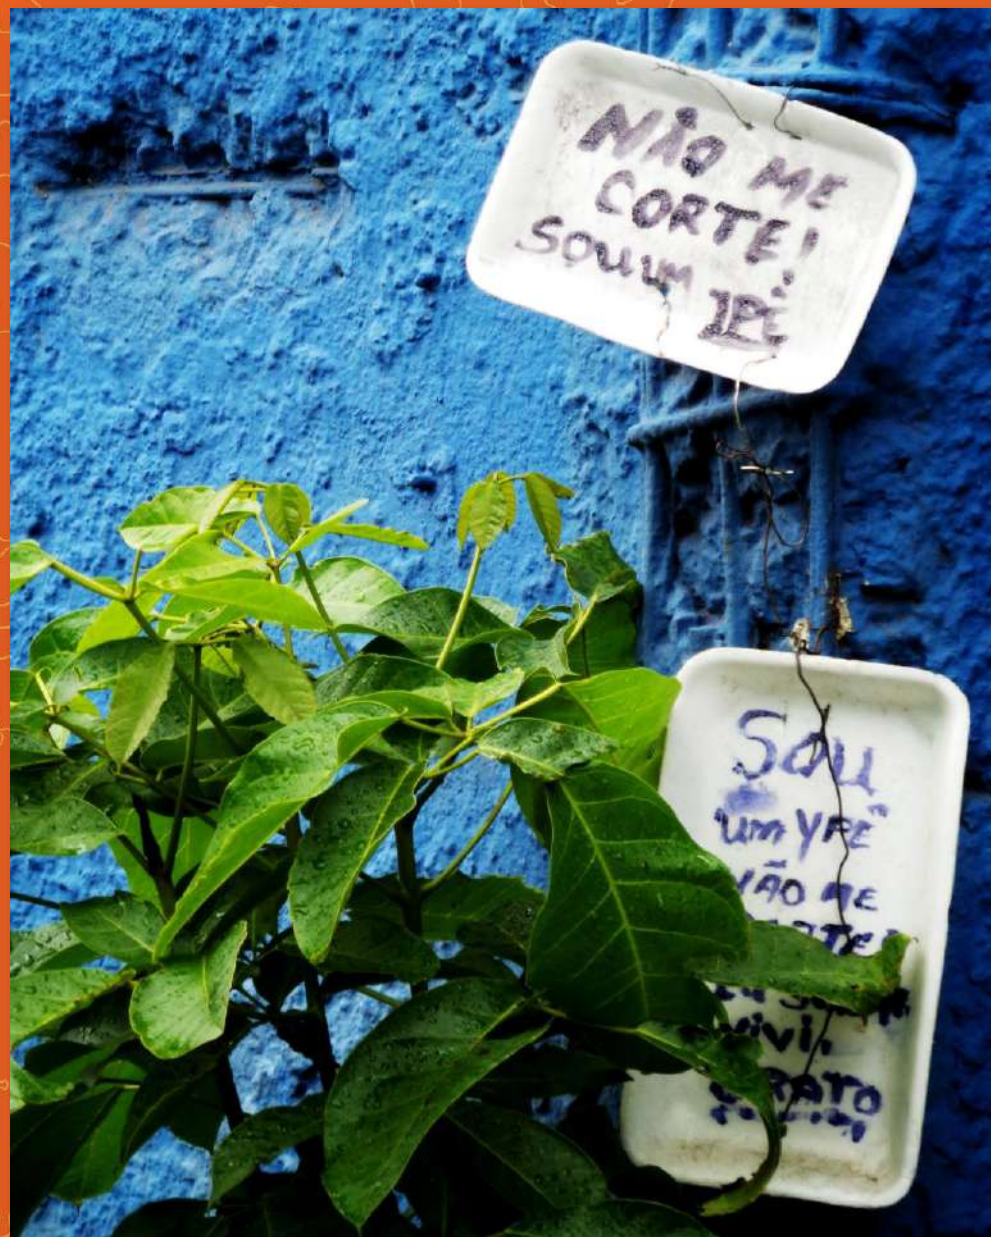 NÃO ME
CORTE!
SOU UM
IPÊ
SOU
UM YPÊ
NÃO ME
VIVI,
GRATO